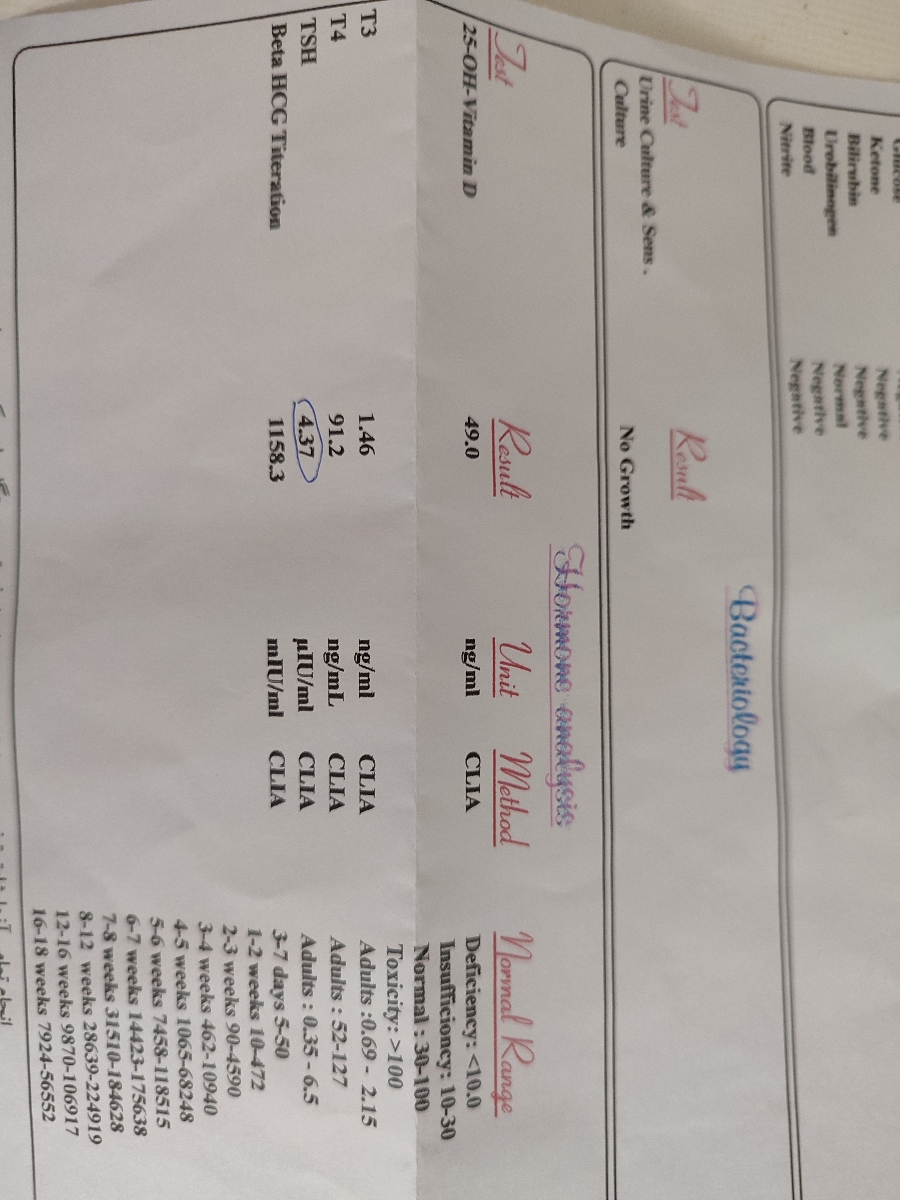 Glucose
Ketone Negative
Bilirubin Negative
Urobilinogen Normal
Blood Negative
Nitrite Negative
Bacteriology
Test Result
Urine Culture & Sens .
Culture No Growth
Hormone analysis
Test Result Unit Method Normal Range
25-OH-Vitamin D 49.0 ng/ml CLIA Deficiency: <10.0
Insufficiency: 10-30
Normal : 30-100
Toxicity: >100
T3 1.46 ng/ml CLIA Adults :0.69 - 2.15
T4 91.2 ng/mL CLIA Adults : 52-127
TSH 4.37 µIU/ml CLIA Adults : 0.35 - 6.5
Beta HCG Titeration 1158.3 mIU/ml CLIA 3-7 days 5-50
1-2 weeks 10-472
2-3 weeks 90-4590
3-4 weeks 462-10940
4-5 weeks 1065-68248
5-6 weeks 7458-118515
6-7 weeks 14423-175638
7-8 weeks 31510-184628
8-12 weeks 28639-224919
12-16 weeks 9870-106917
16-18 weeks 7924-56552